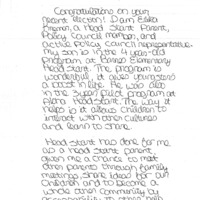 Congratulations on your
recent election! I am Erika
a Head Start Parent,
Policy Council member, and
active Policy Council representative.
My son is in the 4 year old
program at Elementary
Head Start. The program is
wonderful, it gives youngsters
a boost in life. He was also
in the pilot program at
Head Start. The way it
helps is it allows children to
interact with other cultures
and learn to share.
Head Start has done for me
as a Head Start parent,
given me a chance to meet
other parents through family
meetings, share ideas for our
children and to become a
whole other community by